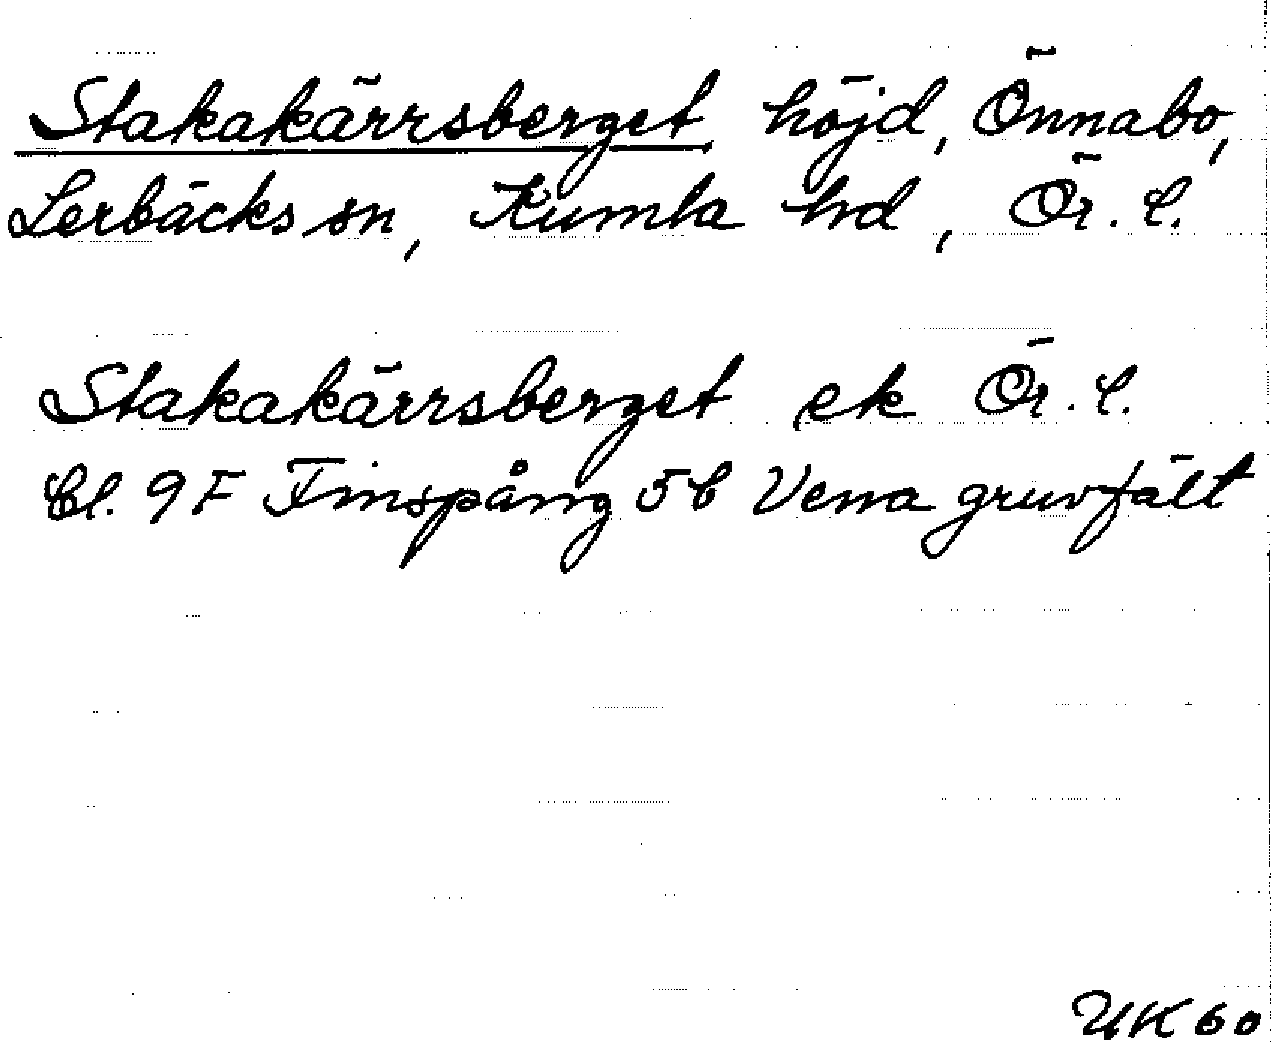 Stakakärrsberget, höjd, Önnabo,
Lerbäcks sn, Kumla hd, Ör. l.
Stakakärrsberget ek Ör. l.
Bl. 9F Finspång 5b Vena gruvfält
UK60